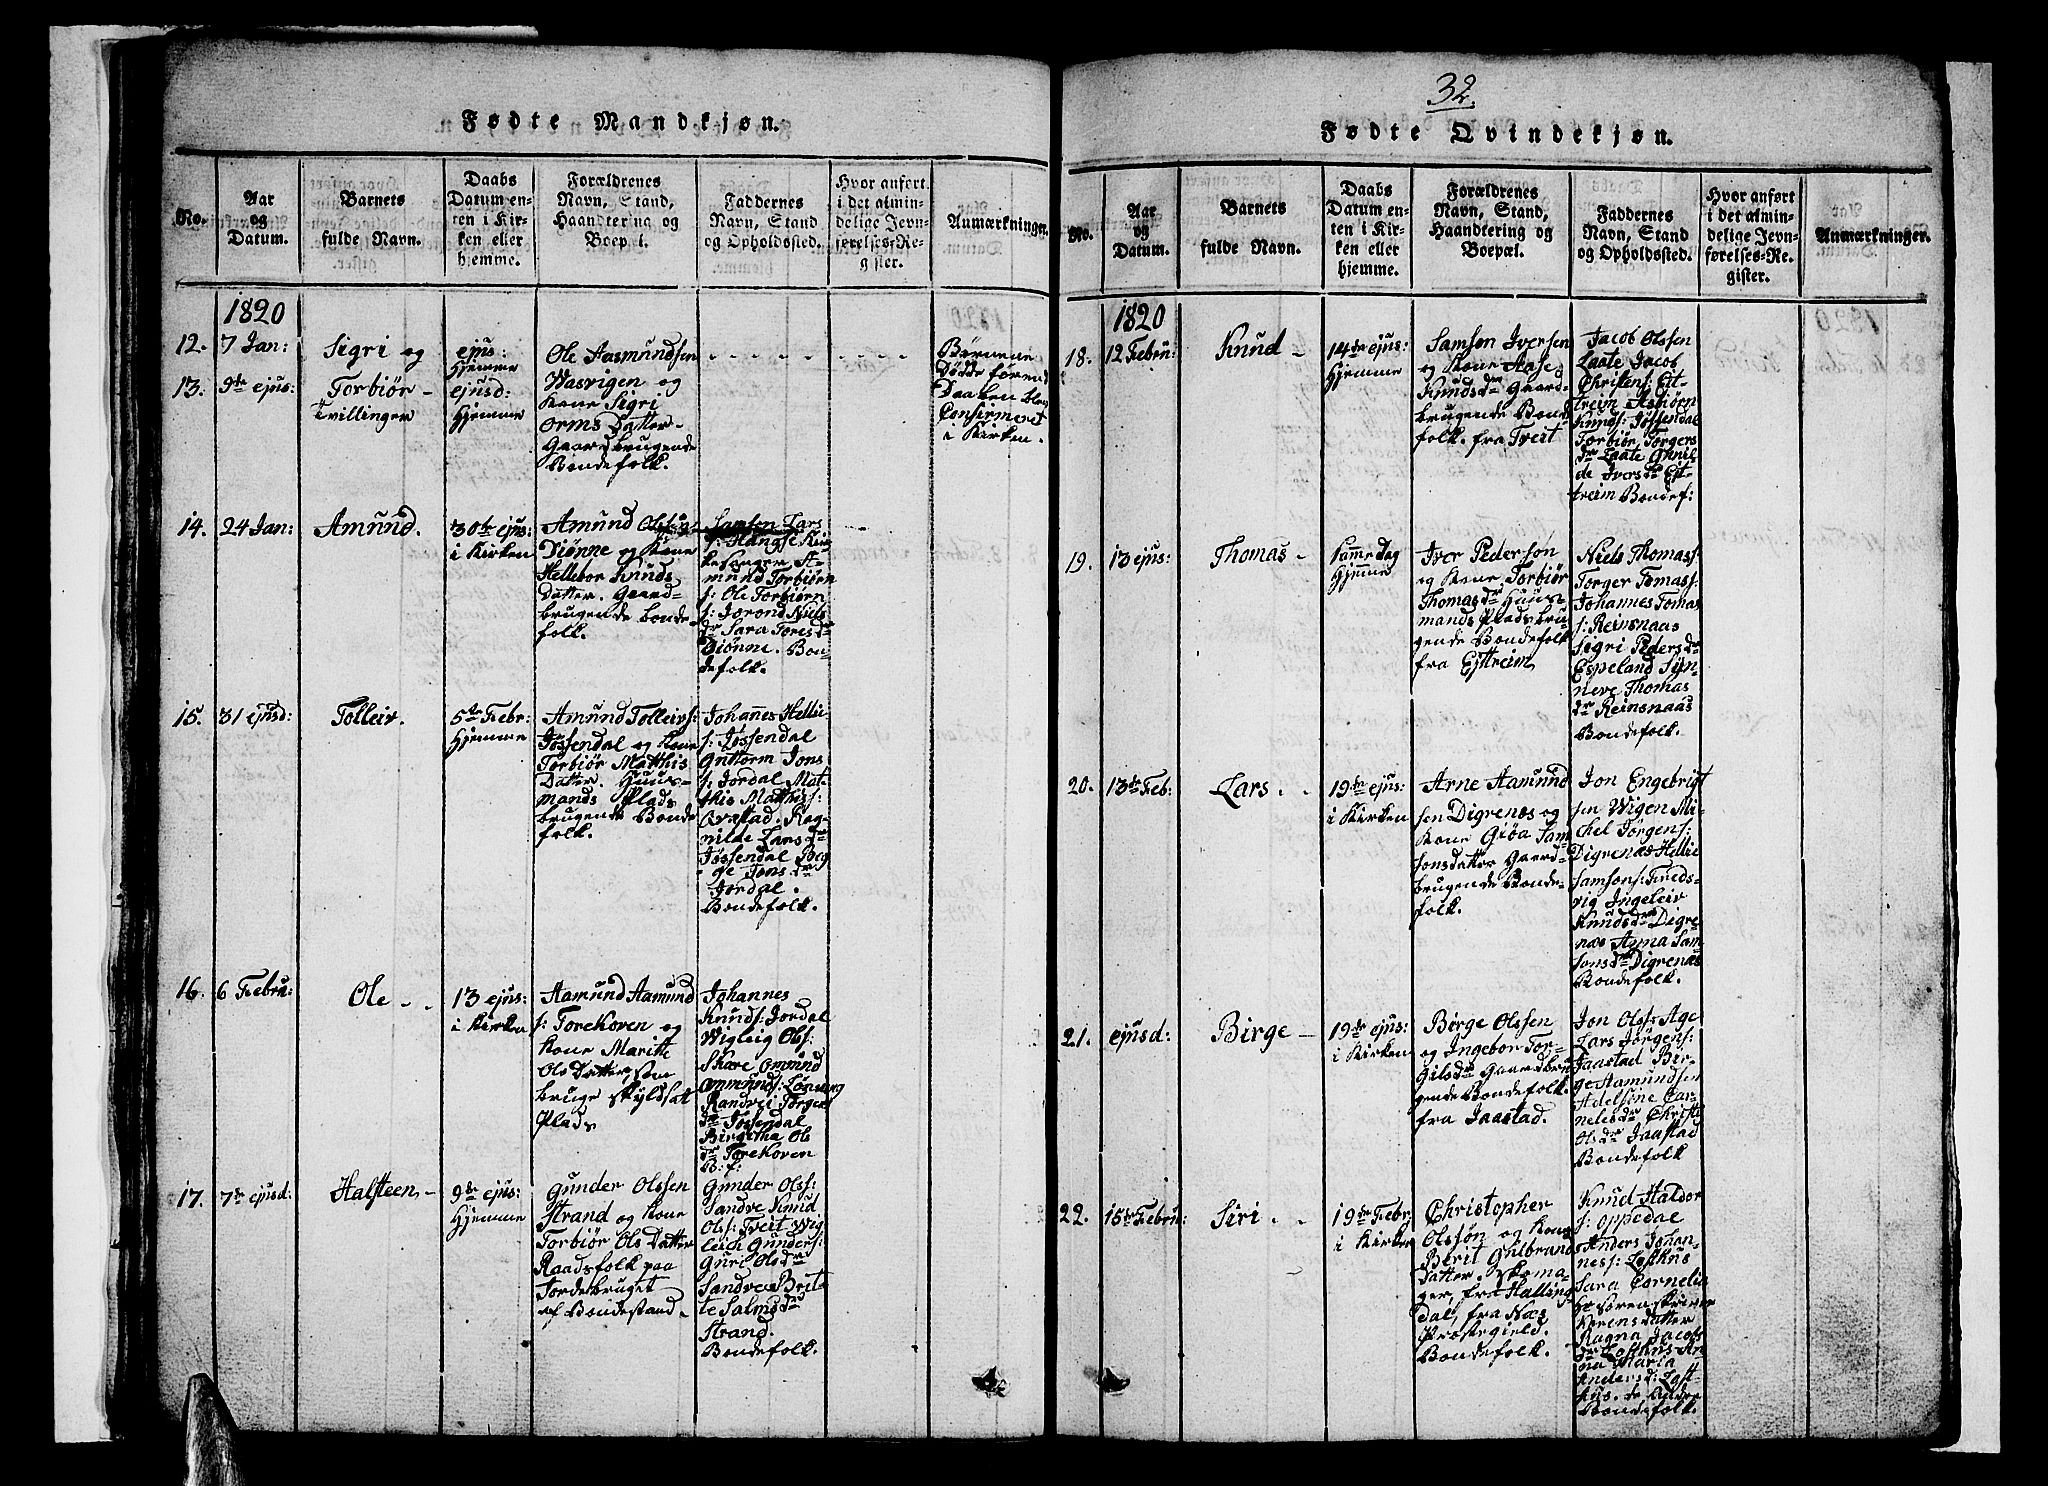 Fødte Mandkjøn.
No.
Aar
og
Datum.
Barnets
fulde Navn.
Daabs
Datum en-
ten i Kir-
ken eller
hjemme.
Forældrenes
Navn, Stand,
Haandtering og
Boepæl.
Faddernes
Navn, Stand
og Opholdssted.
Hvor anført
i det almin-
delige Jevn-
førelses-Re-
gister.
Anmærkninger.
1820
12.
7 Jan:
Sigri og
ejus:
Hjemme
Ole Aasmundsen
Børnene
Døde førend
Daaben blev
Confirmeret
i Kirken.
13.
9de ejus:
Torbiør
Tvillinger
ejusd:
Hjemme
og
Kone Sigri
Orms Datter
Gaardbrugende
Bondefolk.
14.
24 Jan:
Amund.
30te ejus:
i Kirken
Amund
Diønne og Kone
Hellebor Knuds
Datter. Gaard-
brugende bonde
folk.
Samson Lars
s:
A-
mund Torbiørn
s: Ole Torbiørn
s: Jorond Niels
dr Sara Toresdr
Diønne. Bon-
defolk.
15.
31 ejusd:
Tolleiv.
5te Febr:
Hjemme
Amund Tolleivs:
Jøssendal og Kone
Torbiør Matthis
Datter. Huus-
mands Plads
brugende Bonde
folk.
Johannes Hellie
s: Jøssendal
Guttorm Jons
s: Jordal Mat-
this Matthiss:
Rag-
nilde Larsdr
Jøssendal Børg
de Jonsdr
Jordal.
Bondefolk.
16.
6 Febru:
Ole
13 ejus:
i Kirken
Aamund Aamund
s: Torekoven og
Kone Maritte
Ols Datter, som
bruge skyldsat
Plads
Johannes
Knuds: Jordal
Wigleig Ols:
Skare Ommund
Ommunds:
Randvei Torger
dr Jøssendal
Birgitha Ols
dr Torekoven
B: f:
17.
7de ejusd:
Halsteen
9de ejus:
Hjemme
Gunder Olssen
Strand og Kone
Torbiør Ols Datter
Raadsfolk paa
Jordebruget
af Bondestand
Gunder Ols:
Sandve Knud
Ols: Tveit Wig
leich Gunders:
Guri Olsdr
Sandve Brit
te Salmsdr
Strand.
Bondefolk.
32.
Fødte Qvindekjøn.
No.
Aar
og
Datum.
Barnets
fulde Navn.
Daabs
Datum en-
ten i Kir-
ken eller
hjemme.
Forældrenes
Navn, Stand,
Haandtering og
Boepæl.
Faddernes
Navn, Stand
og Opholdssted.
Hvor anført
i det almin-
delige Jevn-
førelses-Re-
gister.
Anmærkninger.
1820
18.
12 Febru:
Knud
14de ejus:
Hjemme
Samson Iversen
og Kone Aase
Knudsdr Gaard-
brugende Bonde
folk. fra Tveit
Jacob Olssen
Laate Jacob
Christens: Eit-
treim Asbiøen
Knuds: Jøssendal
Torbiør Torgers
dr Laate Ghnil
de Iversdr Eit
treim Bondef:
19.
13 ejus:
Thomas
samme dag
Hjemme
Iver Pedersøn
og Kone Torbiør
Thomasdr Huus-
mands Pladsbru
gende Bondefolk
fra Ejttreim
Niels Thomass:
Torger Tomass:
Johannes Tomas
s: Reinsnaas
Sigri Pedersdr
Espeland Syn-
neve Thomas
dr Reinsnaas
Bondefolk.
20.
13de Feb:
Lars.
19de ejus:
i Kirken
Arne Aamund
sen Digrenæs og
Kone Giøa Sam
sonsdatter Gaard-
brugende Bonde-
folk.
Jon Engebrigt
sen Wigen Mi-
chel Jørgens:
Digrenæs Hellie
Samsons: Freds-
vig Ingeleiv
Knudsdr Digre
næs Agma Sam
sonsdr Digrenæs
Bondefolk.
21.
ejusd:
Birge
19de ejus:
i Kirken
Birge Olssen
og Ingebor Tor-
gilsdr Gaardbru
gende Bondefolk.
fra Jaastad.
Jon Olss: Age
Lars Jørgens:
Jaastad Bir-
ge Aamundsen
Adelsine Cor-
nelesdr Christi
Olsdr Jaastad
Bondefolk
22.
15de Febru:
Siri.
19de Febr.
i Kirken
Christopher
Olssøn og Kone
Berit Gulbrand
Datter. Skoma-
ger, fra Halling
dal, fra Næs
Præstegield.
Bondefolk.
Knud Haldor
s: Oppedal
Anders Johan-
nes: Lofthus
Sara Cornelia
Sørenskriver
Korens datter
Ragna Jacobs
dr Lofthus An
na Maria
Andersd: Loft-
hus. de andre
Bondefolk.